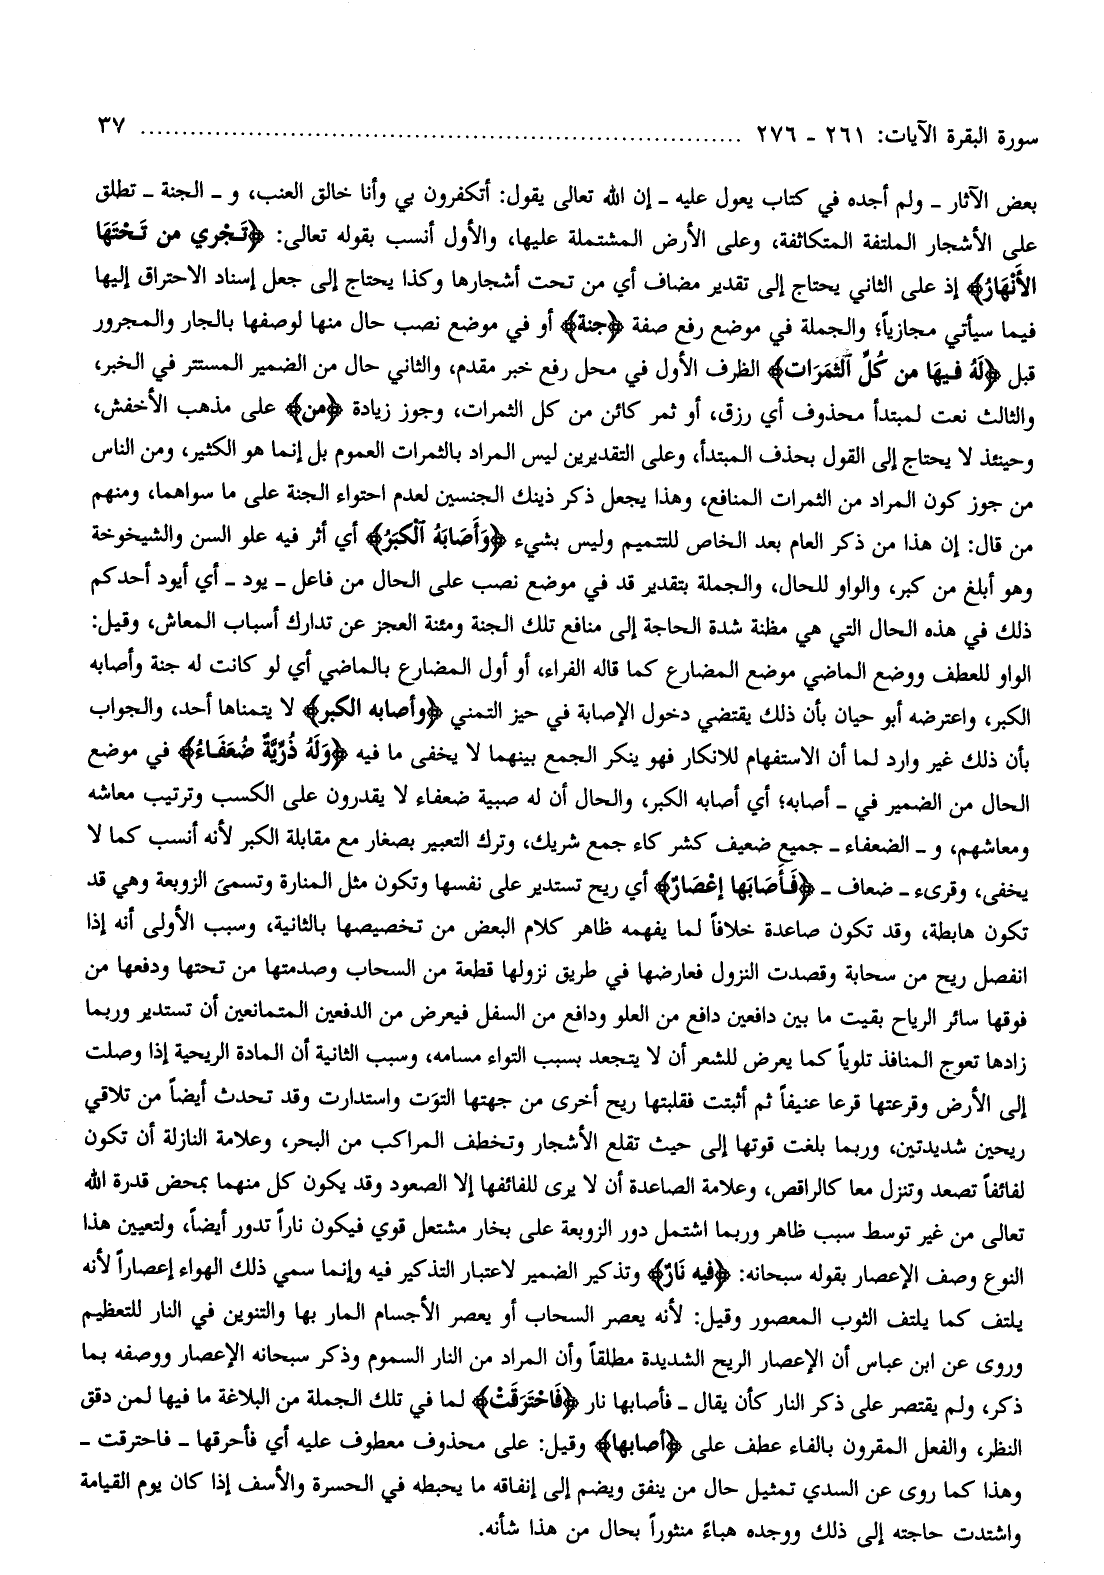 سورة البقرة الآيات: ٢٦١ ـ ٢٧٦ ................................................ ٣٧
بعض الآثار ـ ولم أجده في كتاب يعول عليه ـ إن الله تعالى يقول: أتكفرون بي وأنا خالق العنب، و ـ الجنة ـ تطلق
على الأشجار الملتفة المتكاثفة، وعلى الأرض المشتملة عليها، والأول أنسب بقوله تعالى: ﴿تَجْري من تَحْتهَا
الأَنْهَارُ﴾ إذ على الثاني يحتاج إلى تقدير مضاف أي من تحت أشجارها وكذا يحتاج إلى جعل إسناد الاحتراق إليها
فيما سيأتي مجازياً؛ والجملة في موضع رفع صفة ﴿جنة﴾ أو في موضع نصب حال منها لوصفها بالجار والمجرور
قبل ﴿لَهُ فيهَا من كُلِّ ٱلثمَرَات﴾ الظرف الأول في محل رفع خبر مقدم، والثاني حال من الضمير المستتر في الخبر،
والثالث نعت لمبتدأ محذوف أي رزق، أو ثمر كائن من كل الثمرات، وجوز زيادة ﴿من﴾ على مذهب الأخفش،
وحينئذ لا يحتاج إلى القول بحذف المبتدأ، وعلى التقديرين ليس المراد بالثمرات العموم بل إنما هو الكثير، ومن الناس
من جوز كون المراد من الثمرات المنافع، وهذا يجعل ذكر ذينك الجنسين لعدم احتواء الجنة على ما سواهما، ومنهم
من قال: إن هذا من ذكر العام بعد الخاص للتتميم وليس بشيء ﴿وَأَصَابَهُ ٱلْكبَرُ﴾ أي أثر فيه علو السن والشيخوخة
وهو أبلغ من كبر، والواو للحال، والجملة بتقدير قد في موضع نصب على الحال من فاعل ـ يود ـ أي أيود أحدكم
ذلك في هذه الحال التي هي مظنة شدة الحاجة إلى منافع تلك الجنة ومئنة العجز عن تدارك أسباب المعاش، وقيل:
الواو للعطف ووضع الماضي موضع المضارع كما قاله الفراء، أو أول المضارع بالماضي أي لو كانت له جنة وأصابه
الكبر، واعترضه أبو حيان بأن ذلك يقتضي دخول الإصابة في حيز التمني ﴿وأصابه الكبر﴾ لا يتمناها أحد، والجواب
بأن ذلك غير وارد لما أن الاستفهام للانكار فهو ينكر الجمع بينهما لا يخفى ما فيه ﴿وَلَهُ ذُرِّيَّةٌ ضُعَفَاءُ﴾ في موضع
الحال من الضمير في ـ أصابه؛ أي أصابه الكبر، والحال أن له صبية ضعفاء لا يقدرون على الكسب وترتيب معاشه
ومعاشهم، و ـ الضعفاء ـ جميع ضعيف كشر كاء جمع شريك، وترك التعبير بصغار مع مقابلة الكبر لأنه أنسب كما لا
يخفى، وقرىء ـ ضعاف ـ ﴿فَأَصَابَها إعْصَارٌ﴾ أي ريح تستدير على نفسها وتكون مثل المنارة وتسمى الزوبعة وهي قد
تكون هابطة، وقد تكون صاعدة خلافاً لما يفهمه ظاهر كلام البعض من تخصيصها بالثانية، وسبب الأولى أنه إذا
انفصل ريح من سحابة وقصدت النزول فعارضها في طريق نزولها قطعة من السحاب وصدمتها من تحتها ودفعها من
فوقها سائر الرياح بقيت ما بين دافعين دافع من العلو ودافع من السفل فيعرض من الدفعين المتمانعين أن تستدير وربما
زادها تعوج المنافذ تلوياً كما يعرض للشعر أن لا يتجعد بسبب التواء مسامه، وسبب الثانية أن المادة الريحية إذا وصلت
إلى الأرض وقرعتها قرعا عنيفاً ثم أثبتت فقلبتها ريح أخرى من جهتها التوَت واستدارت وقد تحدث أيضاً من تلاقي
ريحين شديدتين، وربما بلغت قوتها إلى حيث تقلع الأشجار وتخطف المراكب من البحر، وعلامة النازلة أن تكون
لفائفاً تصعد وتنزل معا كالراقص، وعلامة الصاعدة أن لا يرى للفائفها إلا الصعود وقد يكون كل منهما بمحض قدرة الله
تعالى من غير توسط سبب ظاهر وربما اشتمل دور الزوبعة على بخار مشتعل قوي فيكون ناراً تدور أيضاً، ولتعيين هذا
النوع وصف الإعصار بقوله سبحانه: ﴿فيه نَارٌ﴾ وتذكير الضمير لاعتبار التذكير فيه وإنما سمي ذلك الهواء إعصاراً لأنه
يلتف كما يلتف الثوب المعصور وقيل: لأنه يعصر السحاب أو يعصر الأجسام المار بها والتنوين في النار للتعظيم
وروى عن ابن عباس أن الإعصار الريح الشديدة مطلقاً وأن المراد من النار السموم وذكر سبحانه الإعصار ووصفه بما
ذكر، ولم يقتصر على ذكر النار كأن يقال ـ فأصابها نار ﴿فَاحْتَرَقَتْ﴾ لما في تلك الجملة من البلاغة ما فيها لمن دقق
النظر، والفعل المقرون بالفاء عطف على ﴿أصابها﴾ وقيل: على محذوف معطوف عليه أي فأحرقها ـ فاحترقت ـ
وهذا كما روى عن السدي تمثيل حال من ينفق ويضم إلى إنفاقه ما يحبطه في الحسرة والأسف إذا كان يوم القيامة
واشتدت حاجته إلى ذلك ووجده هباءً منثوراً بحال من هذا شأنه.